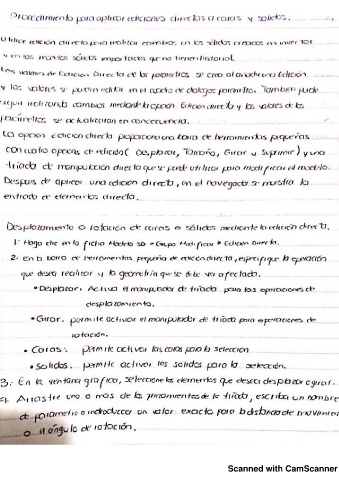 Procedimiento para aplicar ediciones directas a caras y solidos.
Utilice edición directa para realizar cambios en los sólidos creados en inventor
y en los modelos sólidos importados que no tienen historial.
Los valores de Edición Directa de los parámetros se crea al añadir una Edición
y los valores se pueden editar en el cuadro de dialogos parametros. También puede
seguir realizando cambios mediante la opción Edición directa y los valores de los
parámetros se actualizarán en consecuencia.
La opción edición directa proporciona una barra de herramientas pequeñas
con cuatro opciones de edición (Desplazar, Tamaño, Girar y Suprimir) y una
triada de manipulación directa que se puede utilizar para modificar el modelo.
Despues de aplicar una edición directa, en el navegador se muestra la
entrada de elementos directa.
Desplazamiento o rotación de caras o sólidos mediante la edición directa.
1: Haga clic en la ficha Modelo 3D • Grupo Modificar • Edición Directa.
2: En la barra de herramientas pequeña de edición directa, especifique la operación
que desea realizar y la geometría que se debe ver afectada.
• Desplazar. Activa el manipulador de triada para las operaciones de
desplazamiento.
• Girar. permite activar el manipulador de triada para operaciones de
rotación.
• Caras: permite activar las caras para la selección
• Solidos. permite activar los solidos para la selección.
3. En la ventana grafica, seleccione los elementos que desea desplazar o girar.
4. Arrastre uno o mas de los pinzamientos de la triada, escriba un nombre
de parametro o introduzca un valor exacto para la distancia de movimiento
o el ángulo de rotación.
Scanned with CamScanner